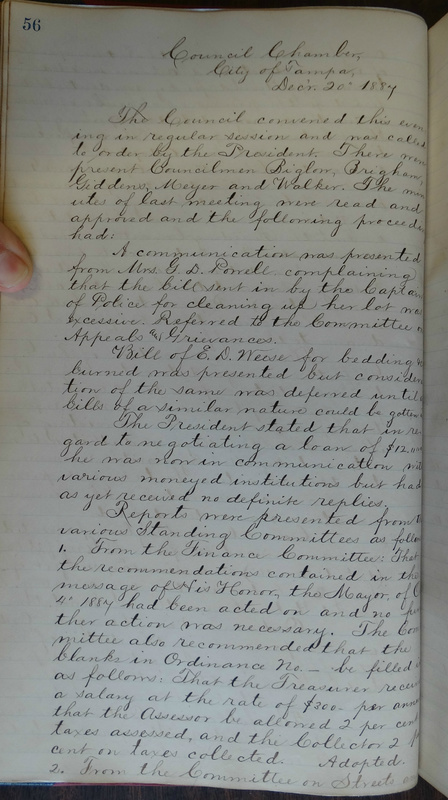 56
Council Chamber,
City of Tampa,
Decr. 20" 1887
The Council convened this even
ing in regular session and was called
to order by the President. There were
present Councilmen Biglow, Brigham,
Giddens, Meyer and Walker. The min
utes of last meeting were read and
approved and the following proceedin
had:
A communication was presented
from Mrs. G. D. Powell complaining
that the bill sent in by the Captain
of Police for cleaning up her lot was
excessive. Referred to the Committee o
Appeals and Grievances.
Bill of E. D. Weose for bedding
burned was presented but consider
tion of the same was deferred until
bills of a similar nature could be gotten
The President stated that in re
gard to negotiating a loan of $12,
he was now in communication wit
various moneyed institutions but had
as yet received no definite replies.
Reports were presented from t
various Standing Committees as follow
1. From the Finance Committee: That
the recommendations contained in the
message of His Honor, the Mayor, of
4" 1887 had been acted on and no fur
ther action was necessary. The Com
mittee also recommended that the
blanks in Ordinance No. — be filled
as follows: That the Treasurer receiv
a salary at the rate of $200- per ann
that the Assessor be allowed 2 per cent
taxes assessed, and the Collector 2 p
cent on taxes collected. Adopted.
2. From the Committee on Streets an